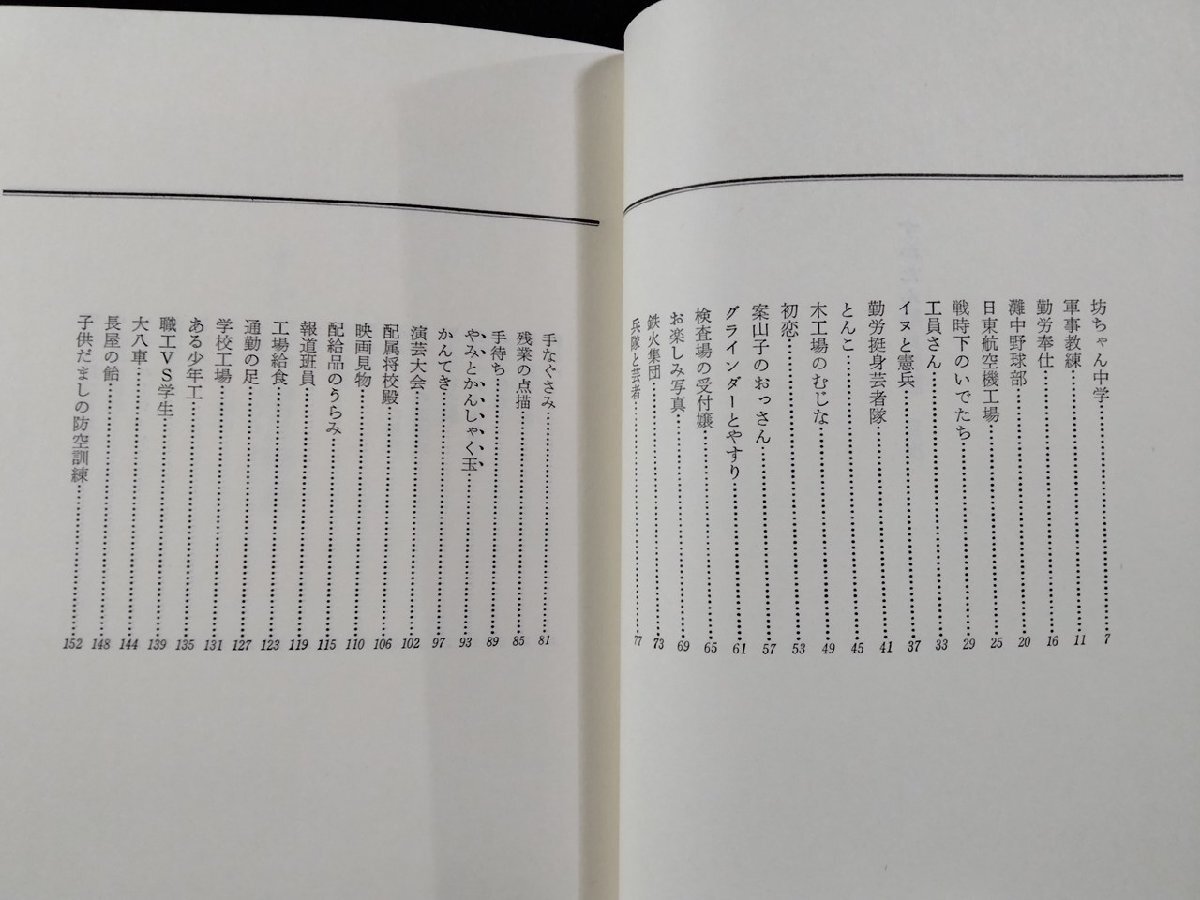 坊ちゃん中学……7
軍事教練……11
勤労奉仕……16
灘中野球部……20
日東航空機工場……25
戦時下のいでたち……29
工員さん……33
イヌと憲兵……37
勤労挺身芸者隊……41
とんこ……45
木工場のむじな……49
初恋……53
案山子のおっさん……57
グラインダーとやすり……61
検査場の受付嬢……65
お楽しみ写真……69
鉄火集団……73
兵隊と芸者……77
手なぐさみ……81
残業の点描……85
手待ち……89
やみとかんしゃく玉……93
かんてき……97
演芸大会……102
配属将校殿……106
映画見物……110
配給品のうらみ……115
報道班員……119
工場給食……123
通勤の足……127
学校工場……131
ある少年工……135
職工VS学生……139
大八車……144
長屋の飴……148
子供だましの防空訓練……152